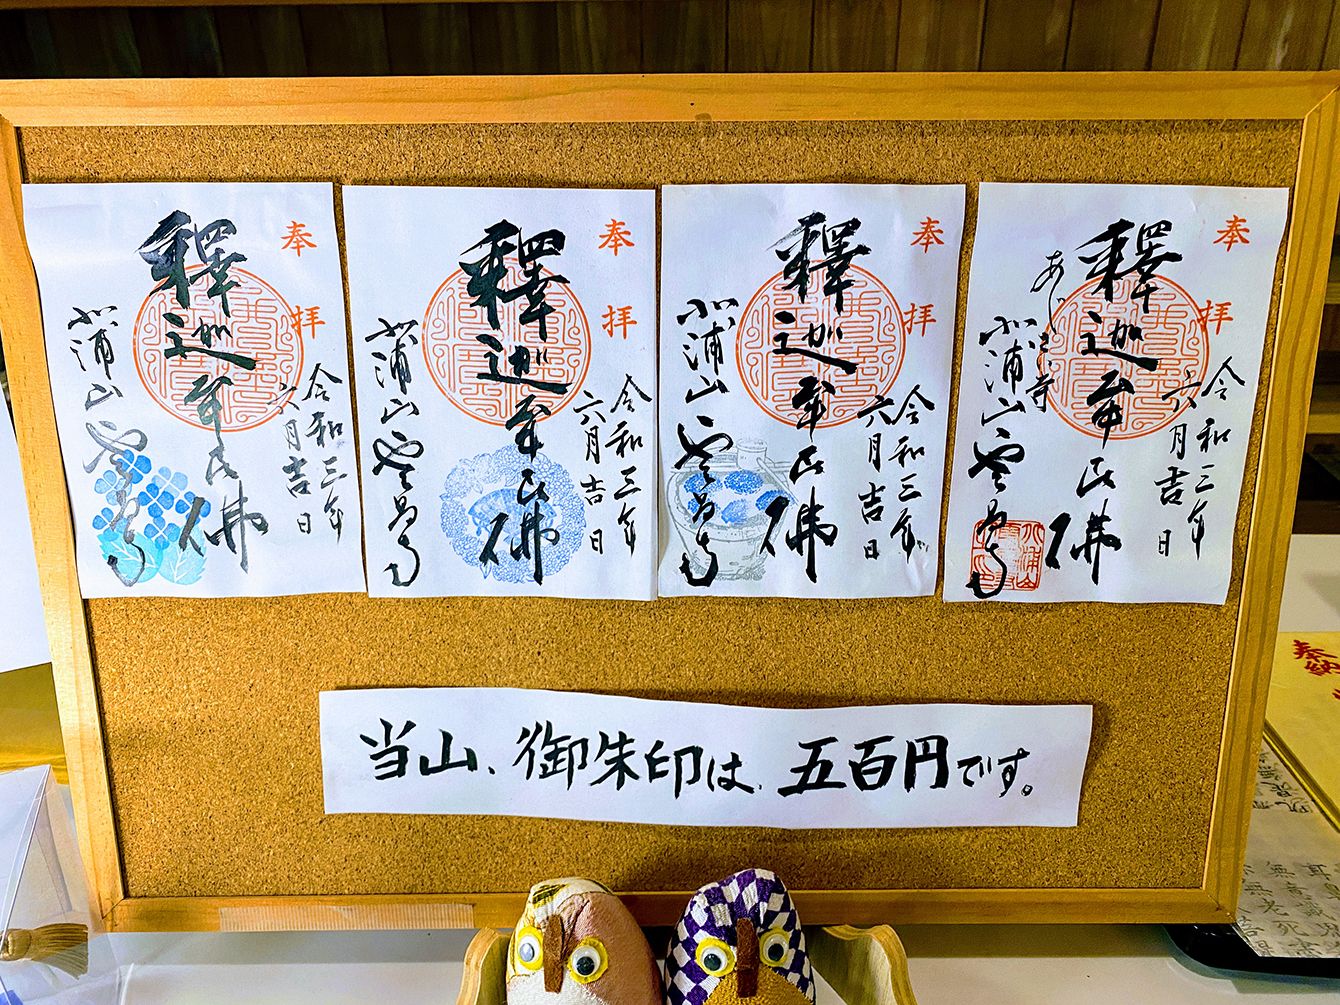 奉拝
令和三年
六月吉日
釋迦牟尼佛
北浦山雲昌寺
奉拝
令和三年
六月吉日
釋迦牟尼佛
北浦山雲昌寺
奉拝
令和三年
六月吉日
釋迦牟尼佛
北浦山雲昌寺
奉拝
令和三年
六月吉日
釋迦牟尼佛
あじさい寺
北浦山雲昌寺
当山、御朱印は、五百円です。
奉納